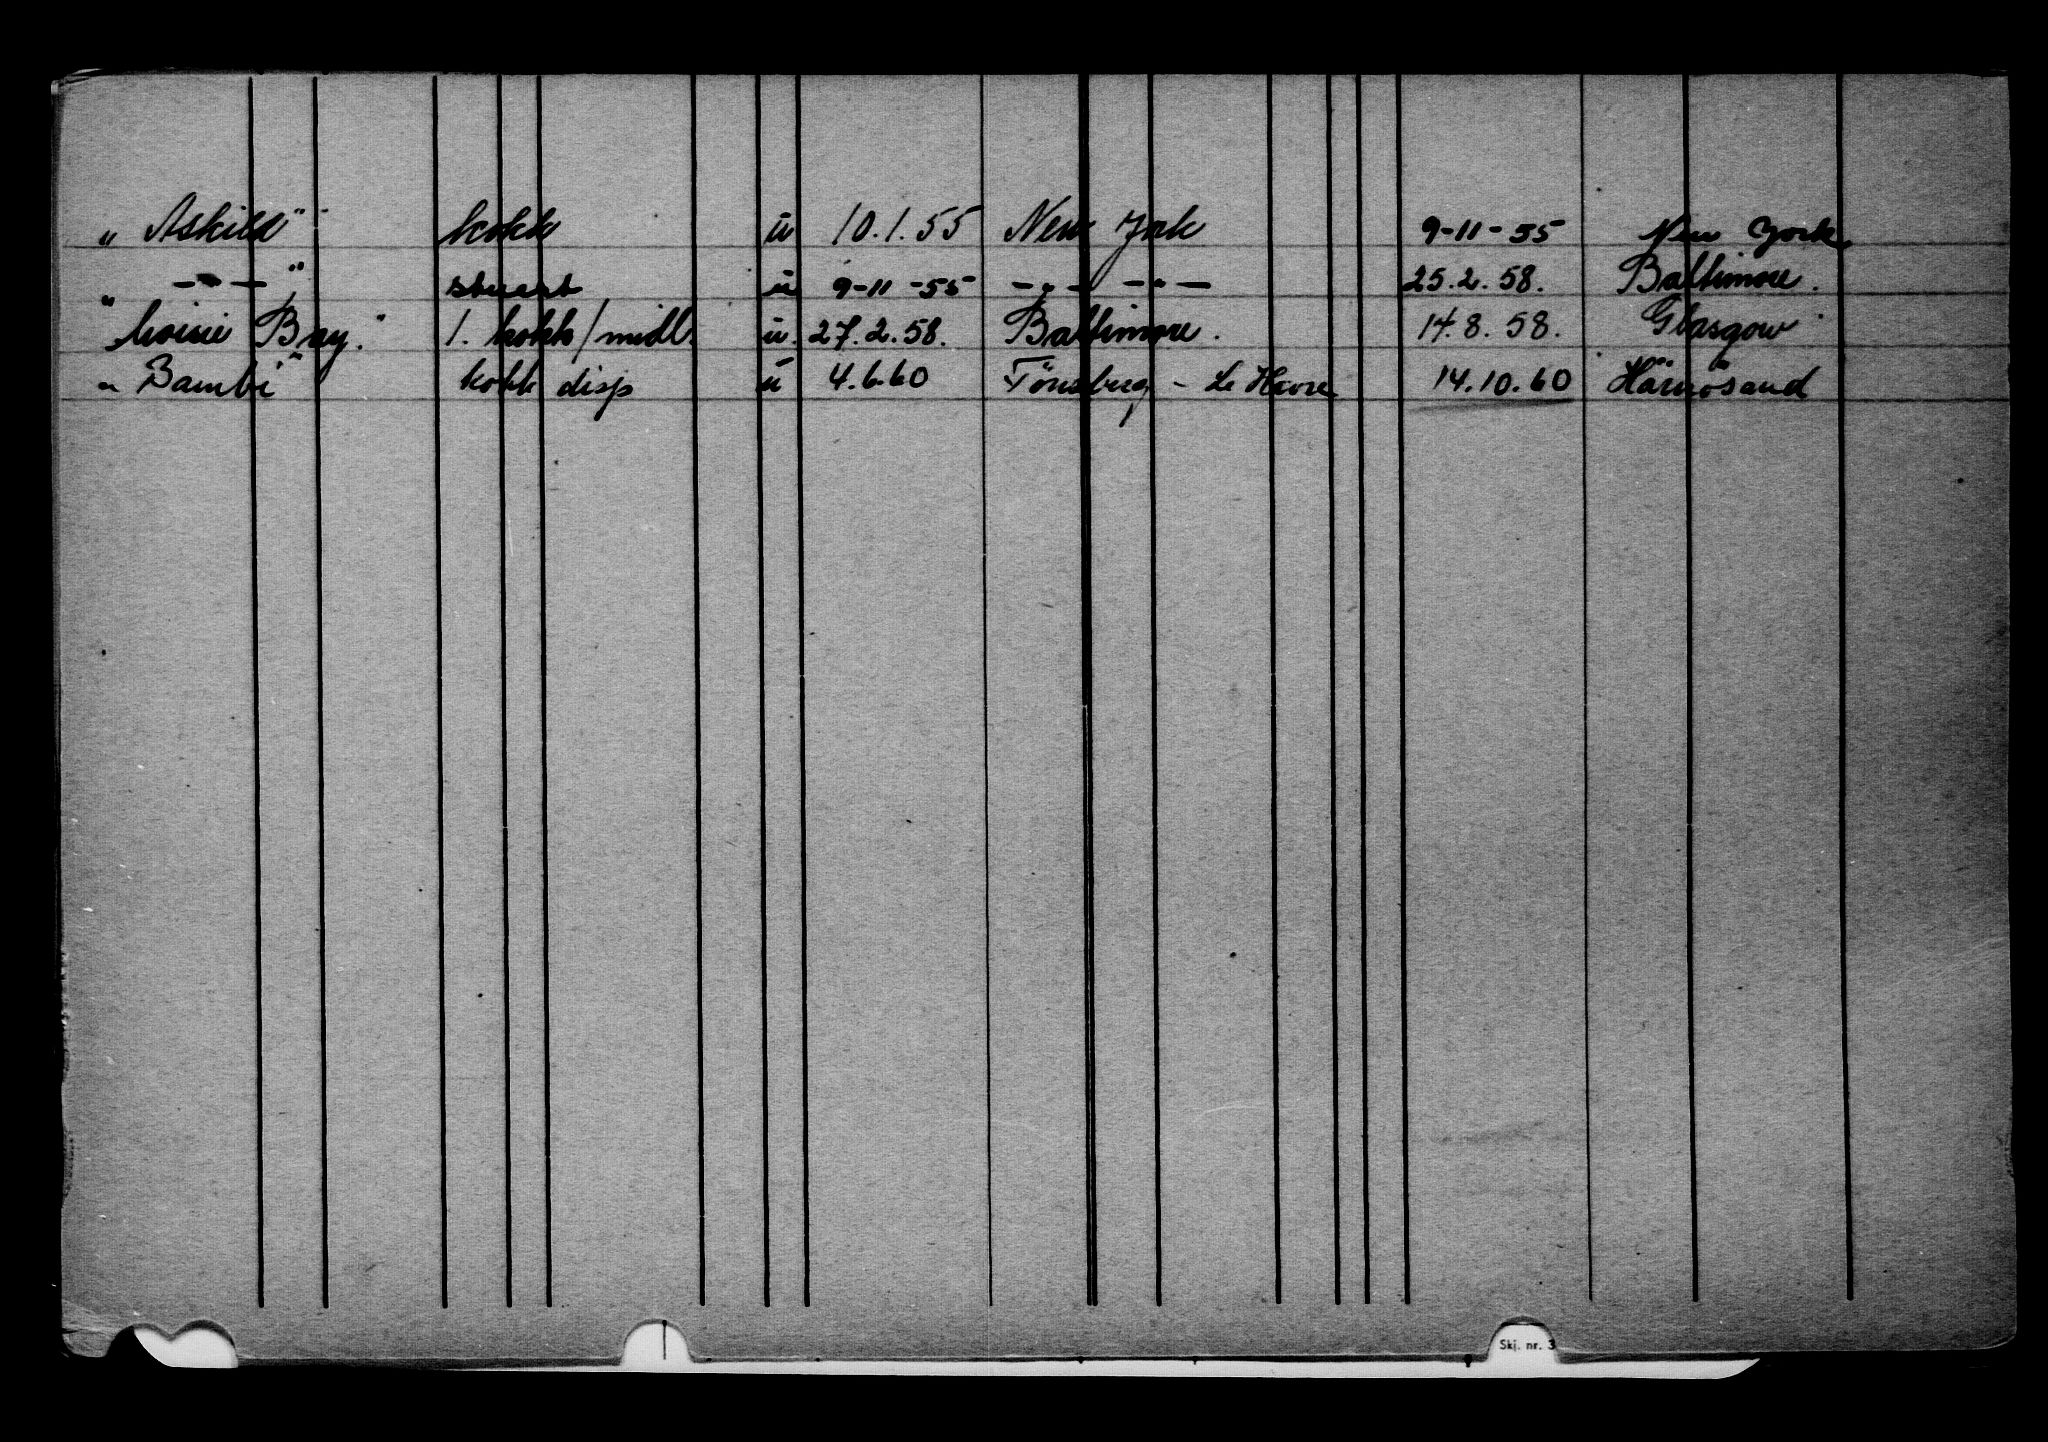 „ Askild" kokk ü 10.1.55 New York 9-11-55 New York
—"—" stuert ü 9-11-55 —"— —"— 25.2.58. Baltimore.
" Moisie Bay." 1. kokk/midl. ü. 27.2.58. Baltimore. 14.8.58. Glasgow
„ Bambi" kokk disp ü 4.6.60 Tönsberg - Le Havre 14.10.60 Härnösand
Skj. nr. 3